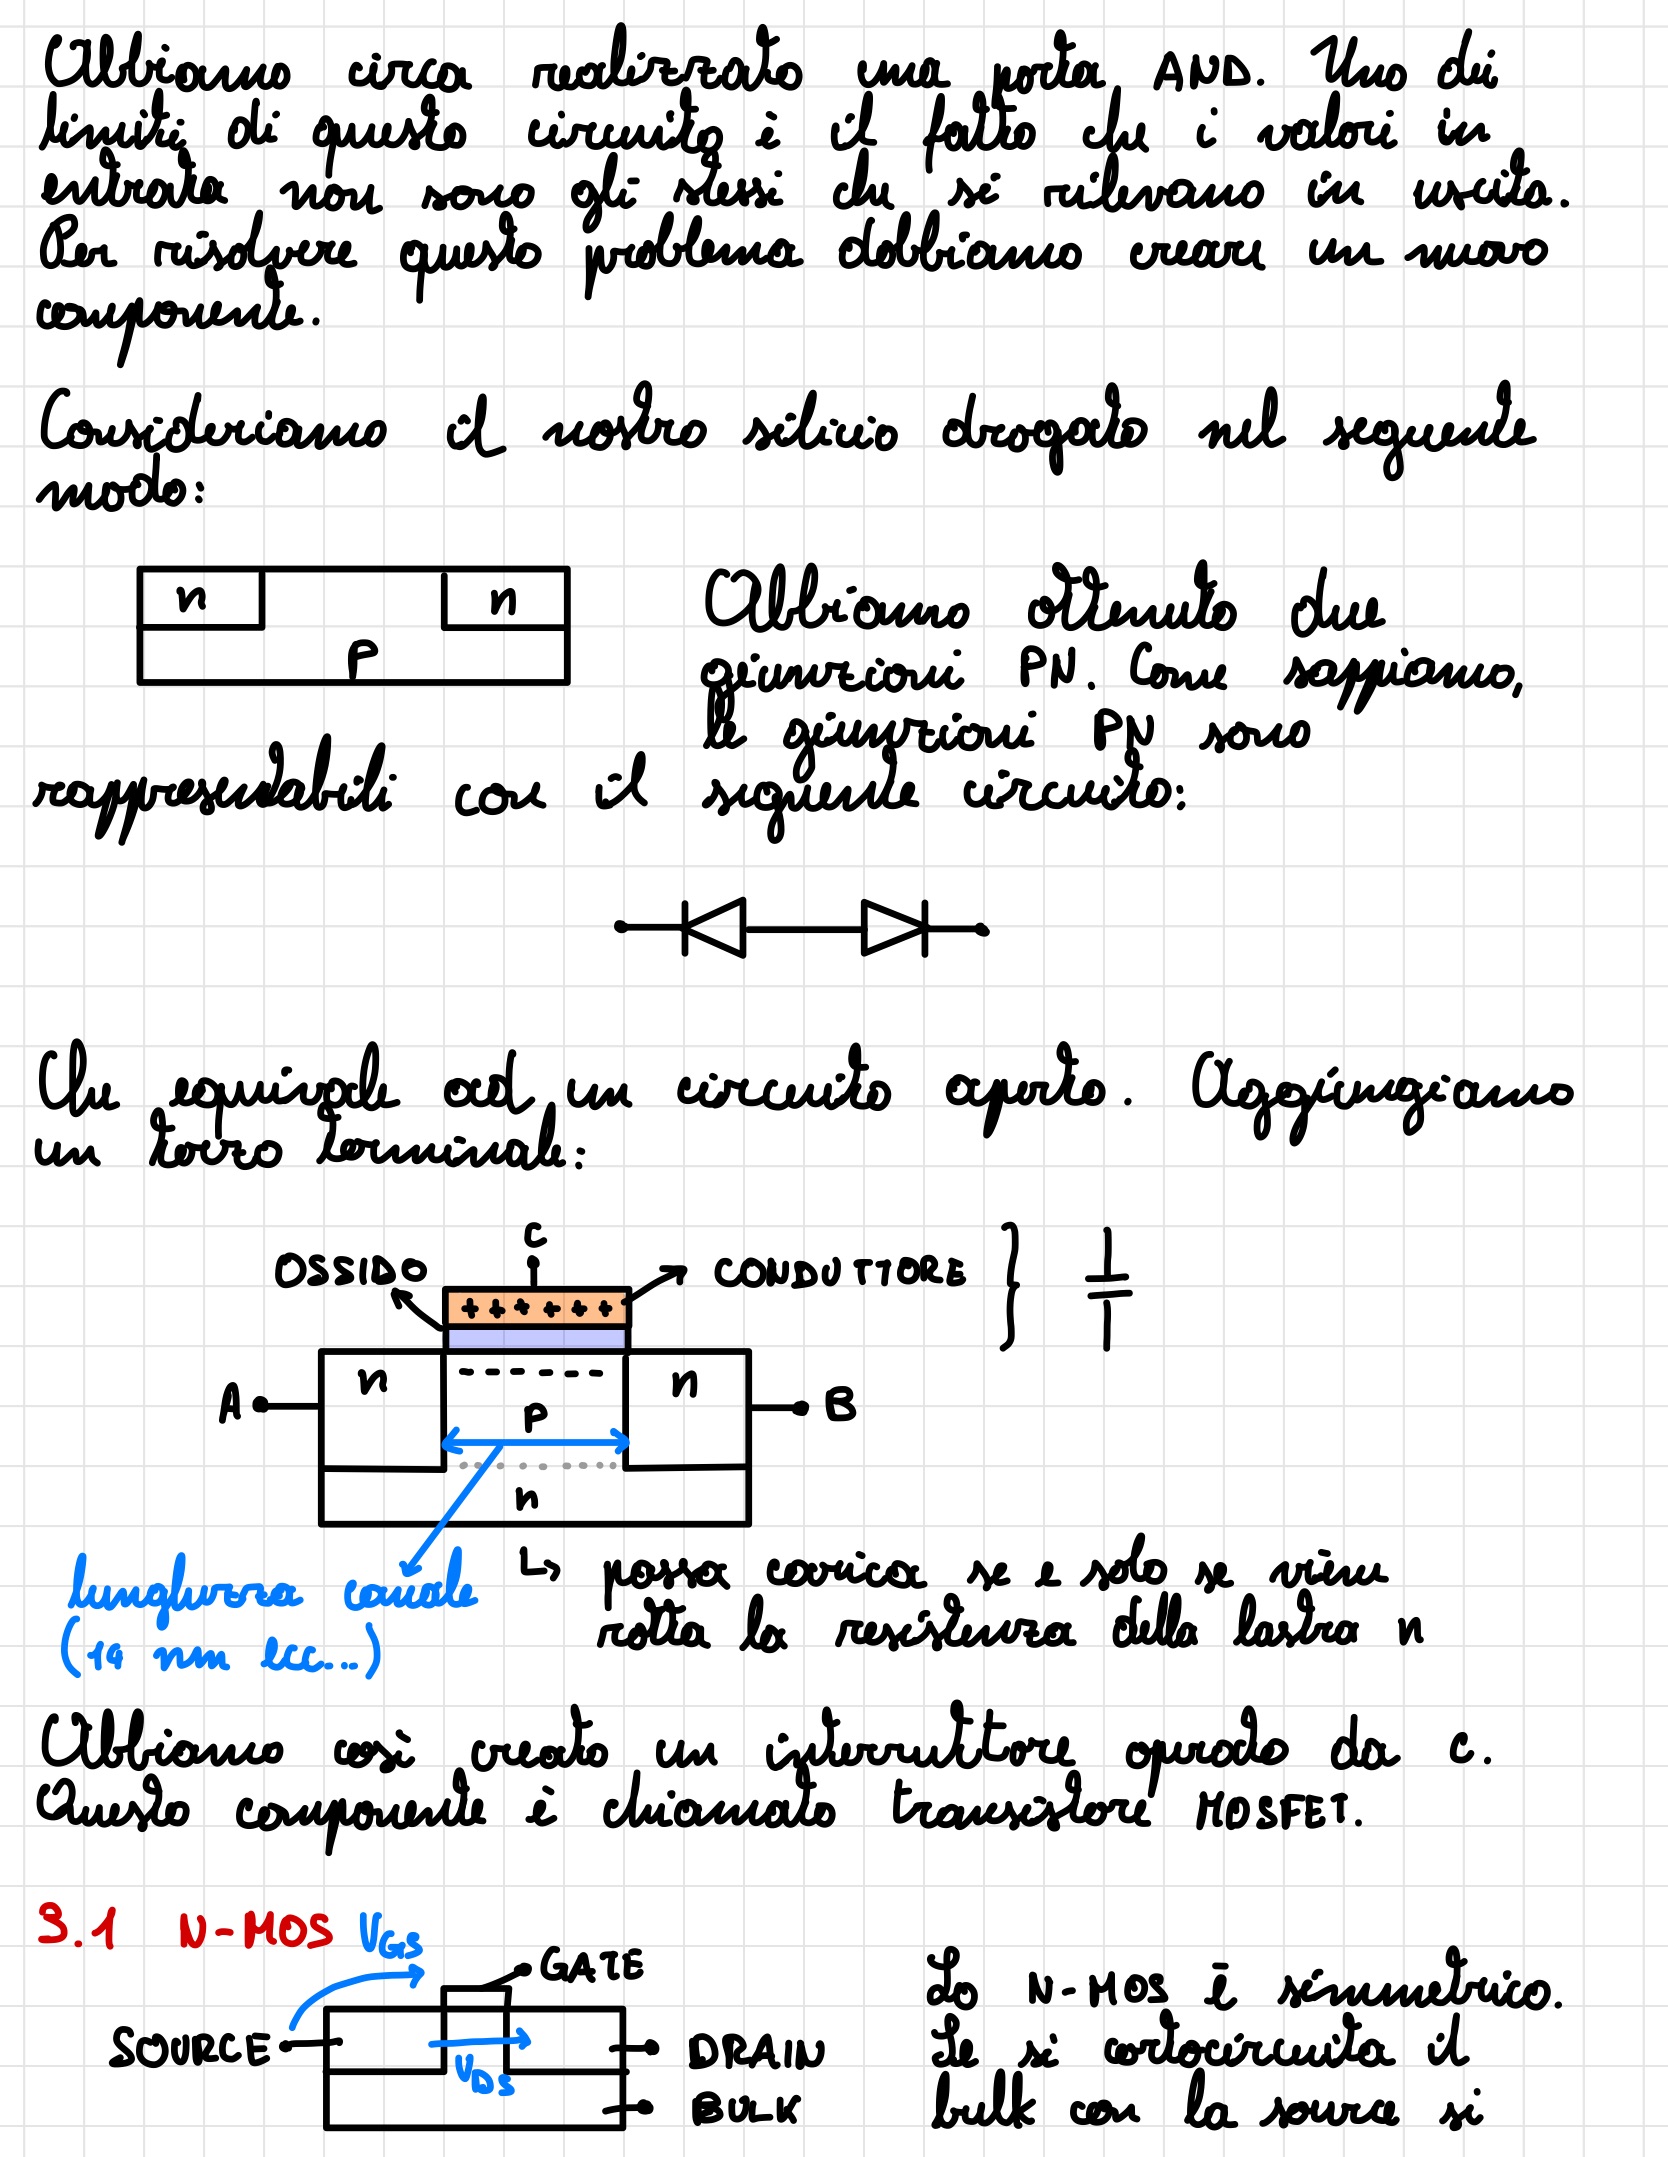 Abbiamo circa realizzato una porta AND. Uno dei
limiti di questo circuito è il fatto che i valori in
entrata non sono gli stessi che si rilevano in uscita.
Per risolvere questo problema dobbiamo creare un nuovo
componente.
Consideriamo il nostro silicio drogato nel seguente
modo:
n n
p
Abbiamo ottenuto due
giunzioni PN. Come sappiamo,
le giunzioni PN sono
rappresentabili con il seguente circuito:
Che equivale ad un circuito aperto. Aggiungiamo
un terzo terminale:
C
OSSIDO CONDUTTORE
+ + + + + +
- - - - - -
n n
A P B
n
lunghezza canale
(14 nm ecc...)
↳ passa carica se e solo se viene
rotta la resistenza della lastra n
Abbiamo così creato un interruttore operato da c.
Questo componente è chiamato transistore MOSFET.
3.1 N-MOS
VGS
GATE
SOURCE
VDS
DRAIN
BULK
Lo N-MOS è simmetrico.
Se si cortocircuita il
bulk con la source si